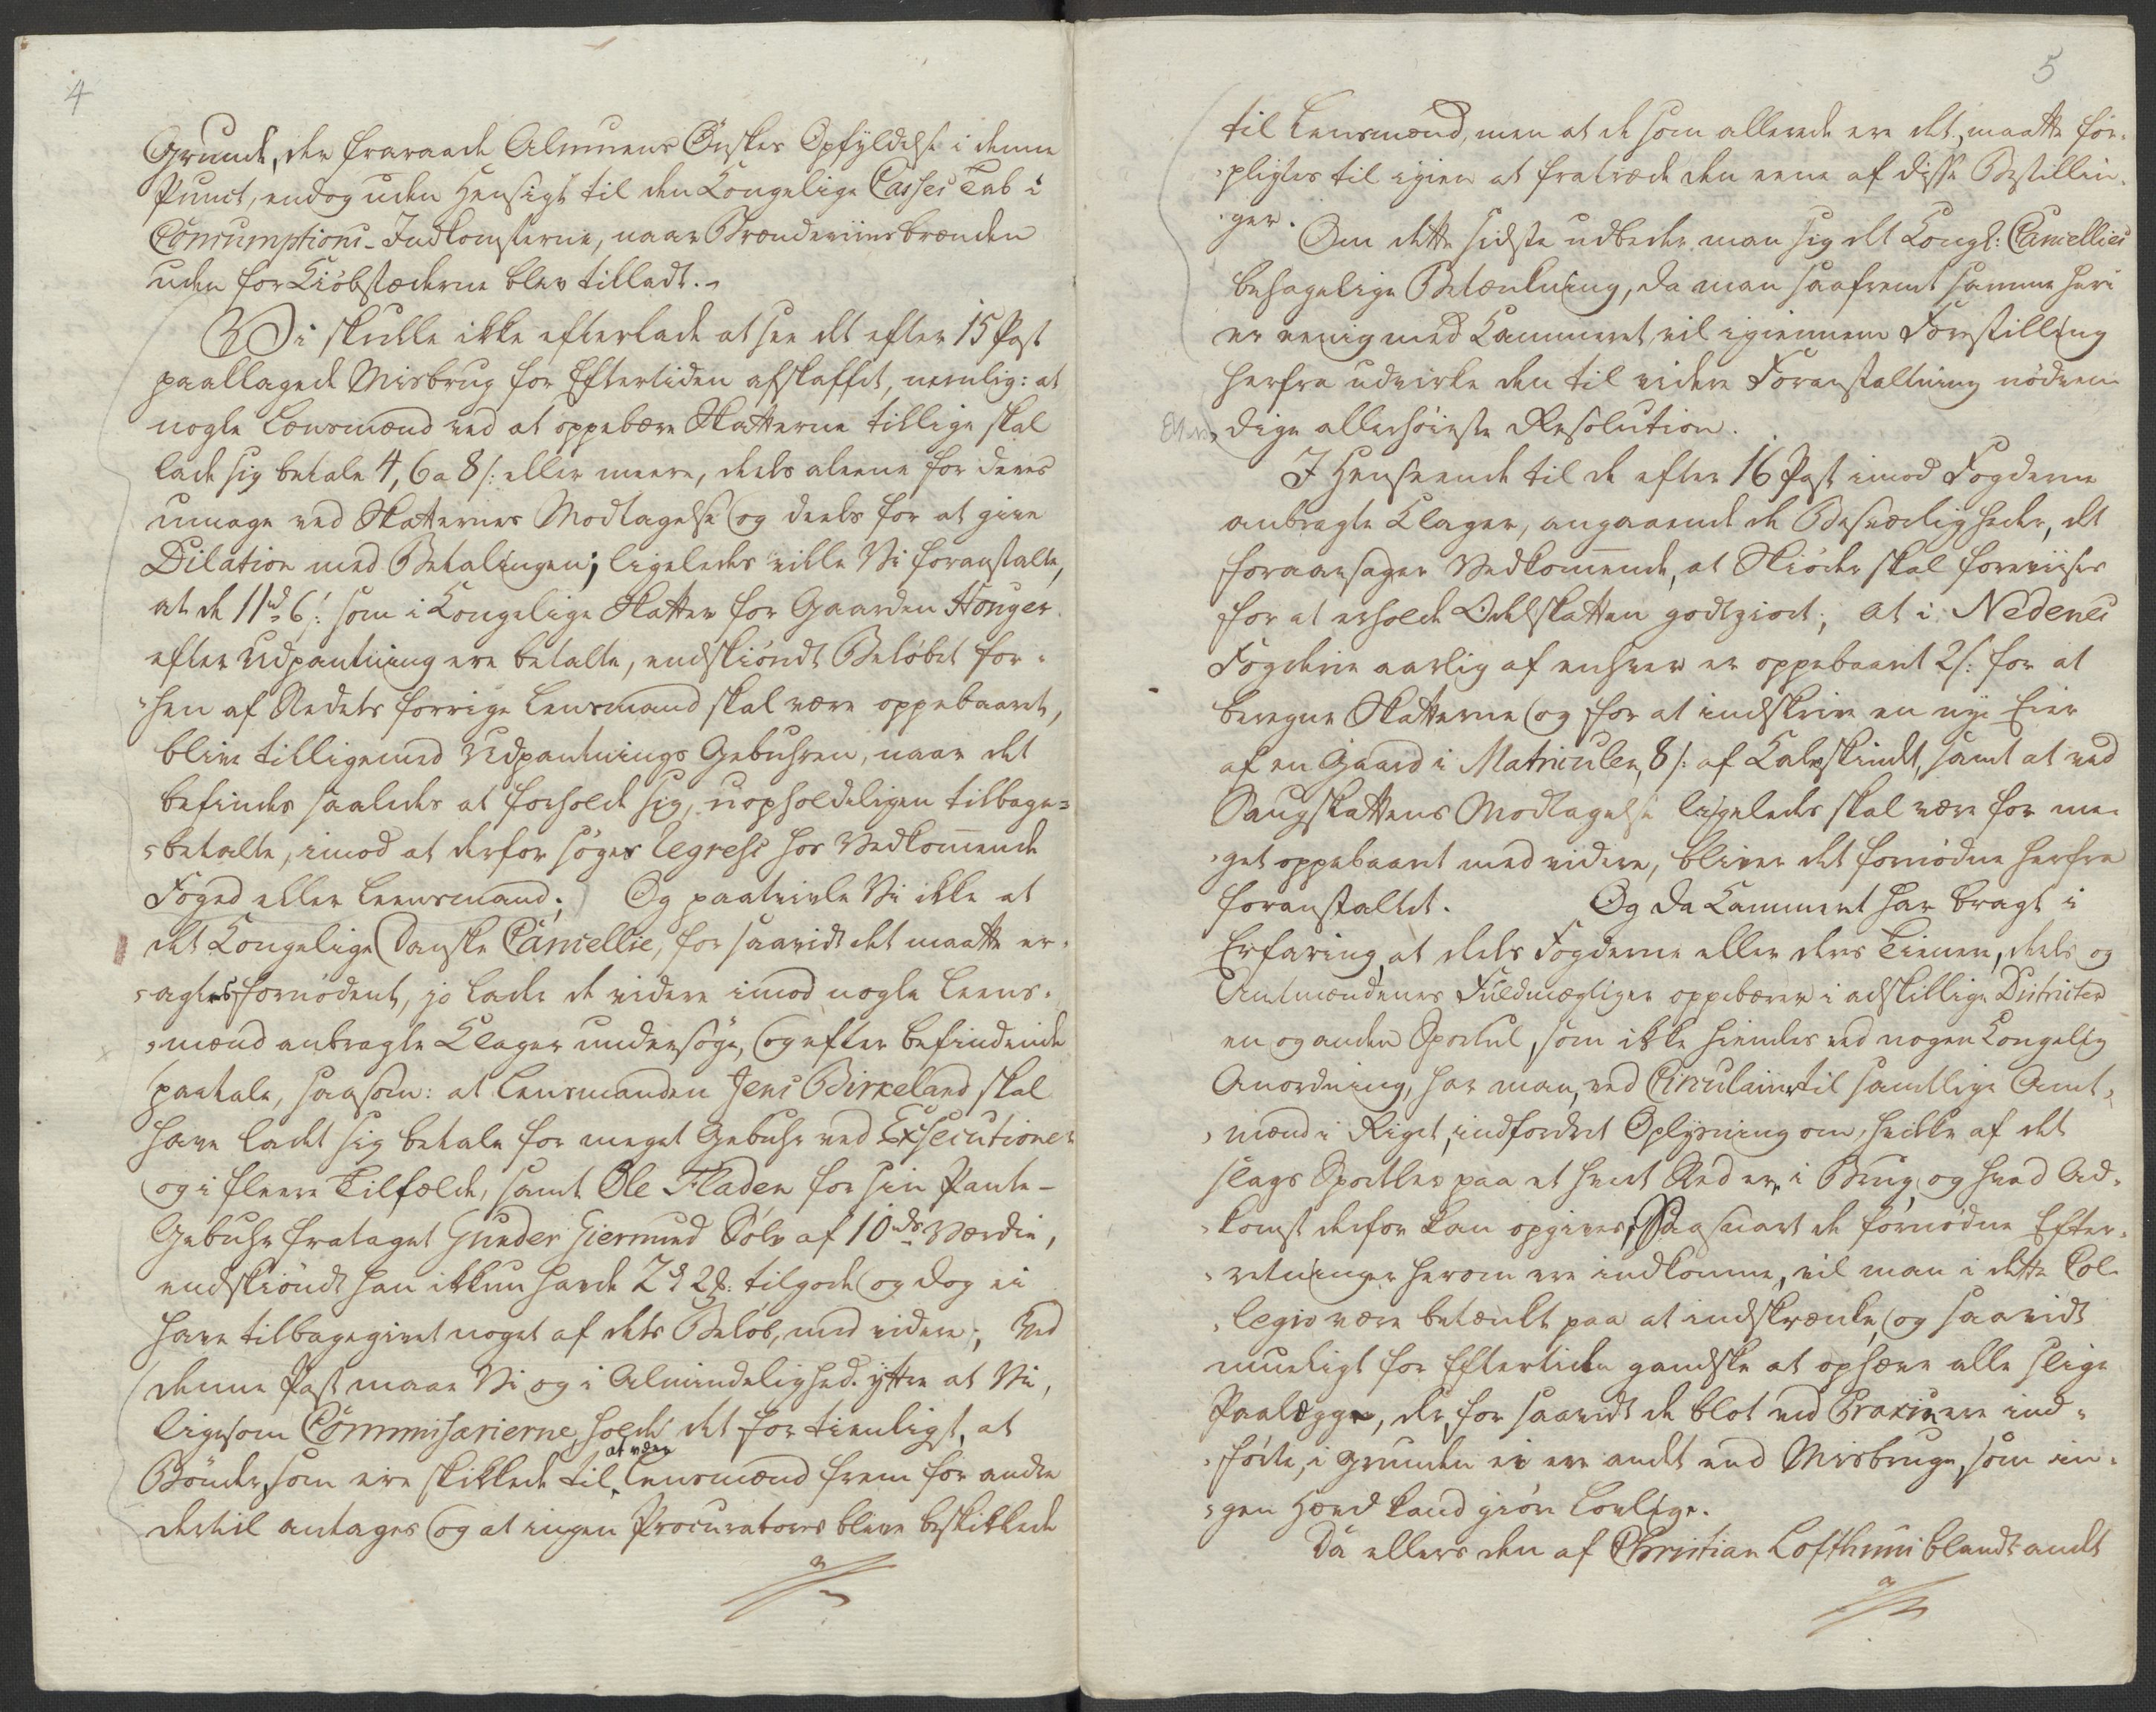 4
Grunde, der fraraade Almuens Ønskes Opfyldelse i denne
Punct, endog uden Hensigt til den Kongelige Casses Tab i
Consumptions-Indkomsterne, naar Brændeviinsbrænden
uden for Kiøbstæderne blev tilladt.
Vi skulle ikke efterlade at see det efter 15 Post
paaklagede Misbrug for Eftertiden afskaffet, nemlig: at
nogle Lensmænd ved at oppebære Skatterne tillige skal
lade sig betale 4, 6 a 8 s: eller meere, deels aleene for deres
umage ved Skatternes Modtagelse og deels for at give
Dilation med Betalingen; ligeledes ville Vi foranstalte,
at de 11 rd 6 s: som i Kongelige Skatter for Gaarden Houger
efter Udpantning ere betalte, endskiøndt Beløbet for-
hen af Stedets forrige Lensmand skal være oppebaaret,
blive tilligemed Udpantnings Gebuhren, naar det
befindes saaledes at forholde sig, uopholdeligen tilbage-
betalte, imod at derfor søges Regress hos Vedkommende
Foged eller Leensmand; Og paatvivle Vi ikke at
det Kongelige Danske Cancellie, for saavidt det maatte er-
agtes fornødent, jo lader de videre imod nogle Leens-
mænd anbragte Klager undersøge, og efter befindende
paatale, saasom: at Lensmanden Jens Birkeland skal
have ladet sig betale for meget Gebuhr ved Exsecutioner
og i fleere Tilfælde, samt Ole Fladen for sin Pante-
Gebuhr frataget Gunder Giermund Sølv af 10 rdr Værdie,
endskiøndt han ikkun havde 2 rd 2 s: tilgode og dog ei
have tilbagegivet noget af dets Beløb, med videre; Ved
denne Post maae Vi og i Almindelighed yttre at Vi,
ligesom Commissarierne, holde det for tienligt, at
Bønder, som ere skikkede til at være Lensmænd frem for andre
dertil antages og at ingen Procuratores bleve beskikkede
5
til Lensmænd, men at de som allerede ere det, maatte for-
pligtes til igien at fratræde den eene af disse Bestillin-
ger. Om dette sidste udbeder man sig det Kongl: Cancellies
behagelige Betænkning, da man saafremt samme heri
er eenig med Kammeret, vil igiennem Forestilling
herfra udvirke den til videre Foranstaltning nødven-
dige allerhøieste Resolution.
I Henseende til de efter 16 Post imod Fogderne
anbragte Klager, angaaende de Besværligheder, det
foraarsager Vedkommende, at Skiøder skal foreviises
for at erholde Odelskatten godtgiort; at i Nedenes
Fogderie aarlig af enhver er oppebaaret 2 s: for at
beregne Skatterne og for at indskrive en nye Eier
af en Gaard i Matriculen, 8 s: af Kalvskindt, samt at ved
Saugskattens Modtagelse ligeledes skal være for me-
get oppebaaret med videre, bliver det fornødne herfra
foranstaltet. Og da Kammeret har bragt i
Erfaring, at deels Fogderne eller deres Tienere, deels og
Amtmændenes Fuldmægtiger oppebærer i adskillige Districter
en og anden Sportul, som ikke hiemles ved nogen Kongelig
Anordning, har man, ved Circulairer til samtlige Amt-
mænd i Riget, indfordret Oplysning om, hvilke af det
slags Sportler paa et hvert Sted er i Brug, og hvad Ad-
komst derfor kan opgives; Saasnart de fornødne Efter-
retninger herom ere indkomne, vil man i dette Col-
legio være betænkt paa at indskrænke, og saavidt
mueligt for Eftertiden gandske at ophæve alle slige
Paalægge, der, for saavidt de blot ved Praxin ere ind-
førte, i Grunden ei ere andet end Misbruge, som in-
gen Hævd kand giøre Lovlige.
Da ellers den af Christian Lofthuus blandt andet